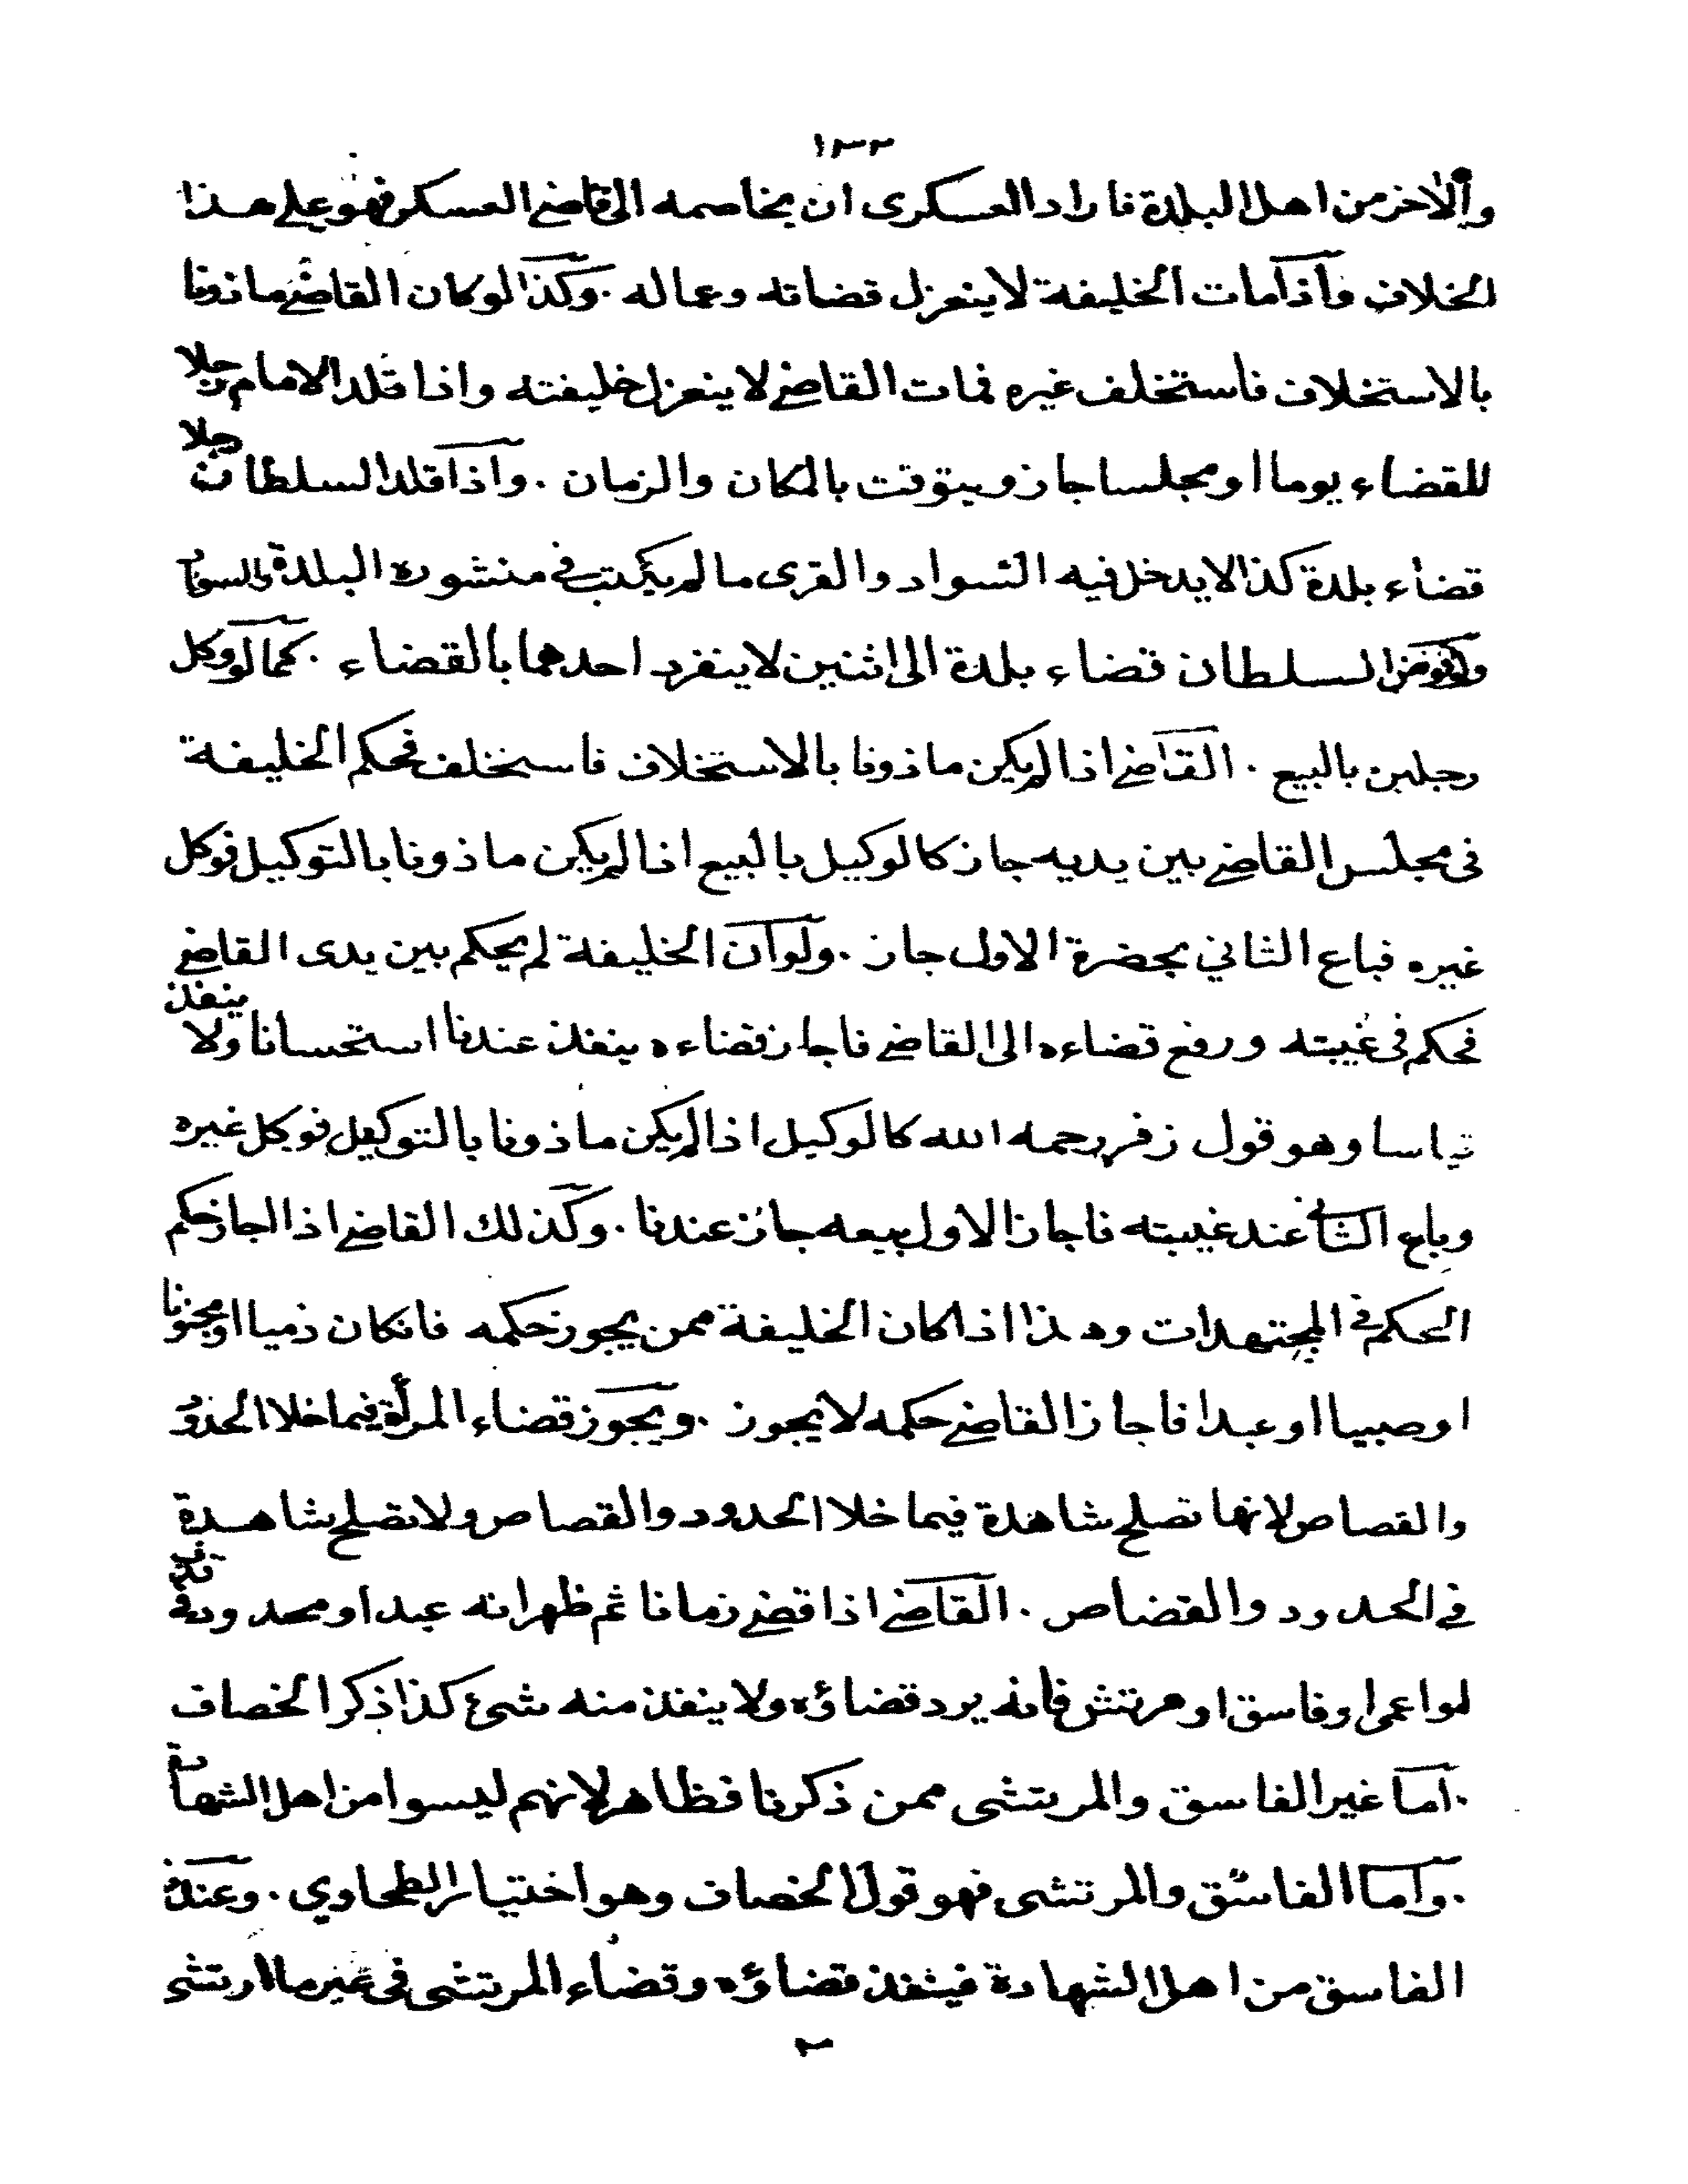 ١٣٣
والاخر من اهل البلدة فاراد العسكرى ان يخاصمه الى قاضى العسكر فهو على هذا
الخلاف واذا مات الخليفة لا ينعزل قضاته وعماله . وكذا لو كان القاضى ماذونا
بالاستخلاف فاستخلف غيره فمات القاضى لا ينعزل خليفته واذا قلد الامام رجلا
للقضاء يوما او مجلسا جاز ويتوقت بالمكان والزمان . واذا قلد السلطان رجلا
قضاء بلدة كذا لا يدخل فيه السواد والقرى ما لم يكتب فى منشوره البلدة والسواد
ولو فوض السلطان قضاء بلدة الى اثنين لا ينفرد احدهما بالقضاء . كما لو وكل
رجلين بالبيع . القاضى اذا لم يكن ماذونا بالاستخلاف فاستخلف فحكم الخليفة
فى مجلس القاضى بين يديه جاز كالوكيل بالبيع اذا لم يكن ماذونا بالتوكيل فوكل
غيره فباع الثاني بحضرة الاول جاز . ولو ان الخليفة لم يحكم بين يدى القاضى
فحكم فى غيبته ورفع قضاءه الى القاضى فاجاز قضاءه ينفذ عندنا استحسانا ولا ينفذ
قياسا وهو قول زفر رحمه الله كالوكيل اذا لم يكن ماذونا بالتوكيل فوكل غيره
وباع الثانى عند غيبته فاجاز الاول بيعه جائز عندنا . وكذلك القاضى اذا اجاز حكم
الحكم فى المجتهدات وهذا اذا كان الخليفة ممن يجوز حكمه فانكان ذميا او مجنونا
او صبيا او عبدا فاجاز القاضى حكمه لا يجوز . ويجوز قضاء المرأة فيما خلا الحدود
والقصاص لانها تصلح شاهدة فيما خلا الحدود والقصاص ولا تصلح شاهدة
فى الحدود والقضاص . القاضى اذا قضى زمانا ثم ظهر انه عبد او محدود فى قذف
او اعمى او فاسق او مرتش فانه يرد قضاؤه ولا ينفذ منه شئ كذا ذكر الخصاف
. اما غير الفاسق والمرتشى ممن ذكرنا فظاهر لانهم ليسوا من اهل الشهادة
. واما الفاسق والمرتشى فهو قول الخصاف وهو اختيار الطحاوي . وعندنا
الفاسق من اهل الشهادة فينفذ قضاؤه وقضاء المرتشى فى غير ما ارتشى